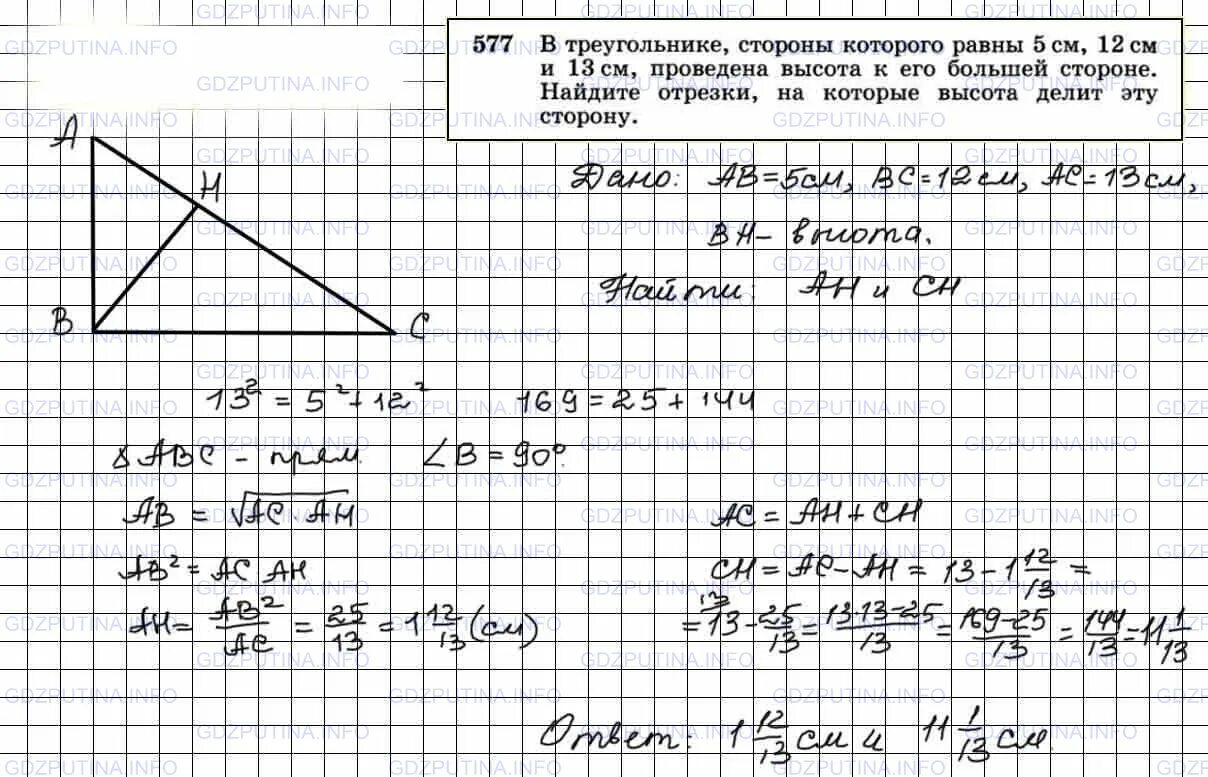 577 В треугольнике, стороны которого равны 5 см, 12 см
и 13 см, проведена высота к его большей стороне.
Найдите отрезки, на которые высота делит эту
сторону.
A
H
B
C
Дано: AB=5см, BC=12см, AC=13см,
BH- высота.
Найти: AH и CH
13² = 5² + 12² 169 = 25 + 144
∆ABC - прям. ∠B = 90°.
AB = √AC · AH
AB² = AC AH
AH = AB²/AC = 25/13 = 1 12/13 (см)
AC = AH + CH
CH = AC - AH = 13 - 1 12/13 =
= 13 - 25/13 = 13·13-25/13 = 169-25/13 = 144/13 = 11 1/13
Ответ: 1 12/13 см и 11 1/13 см.
GDZPUTINA.INFO